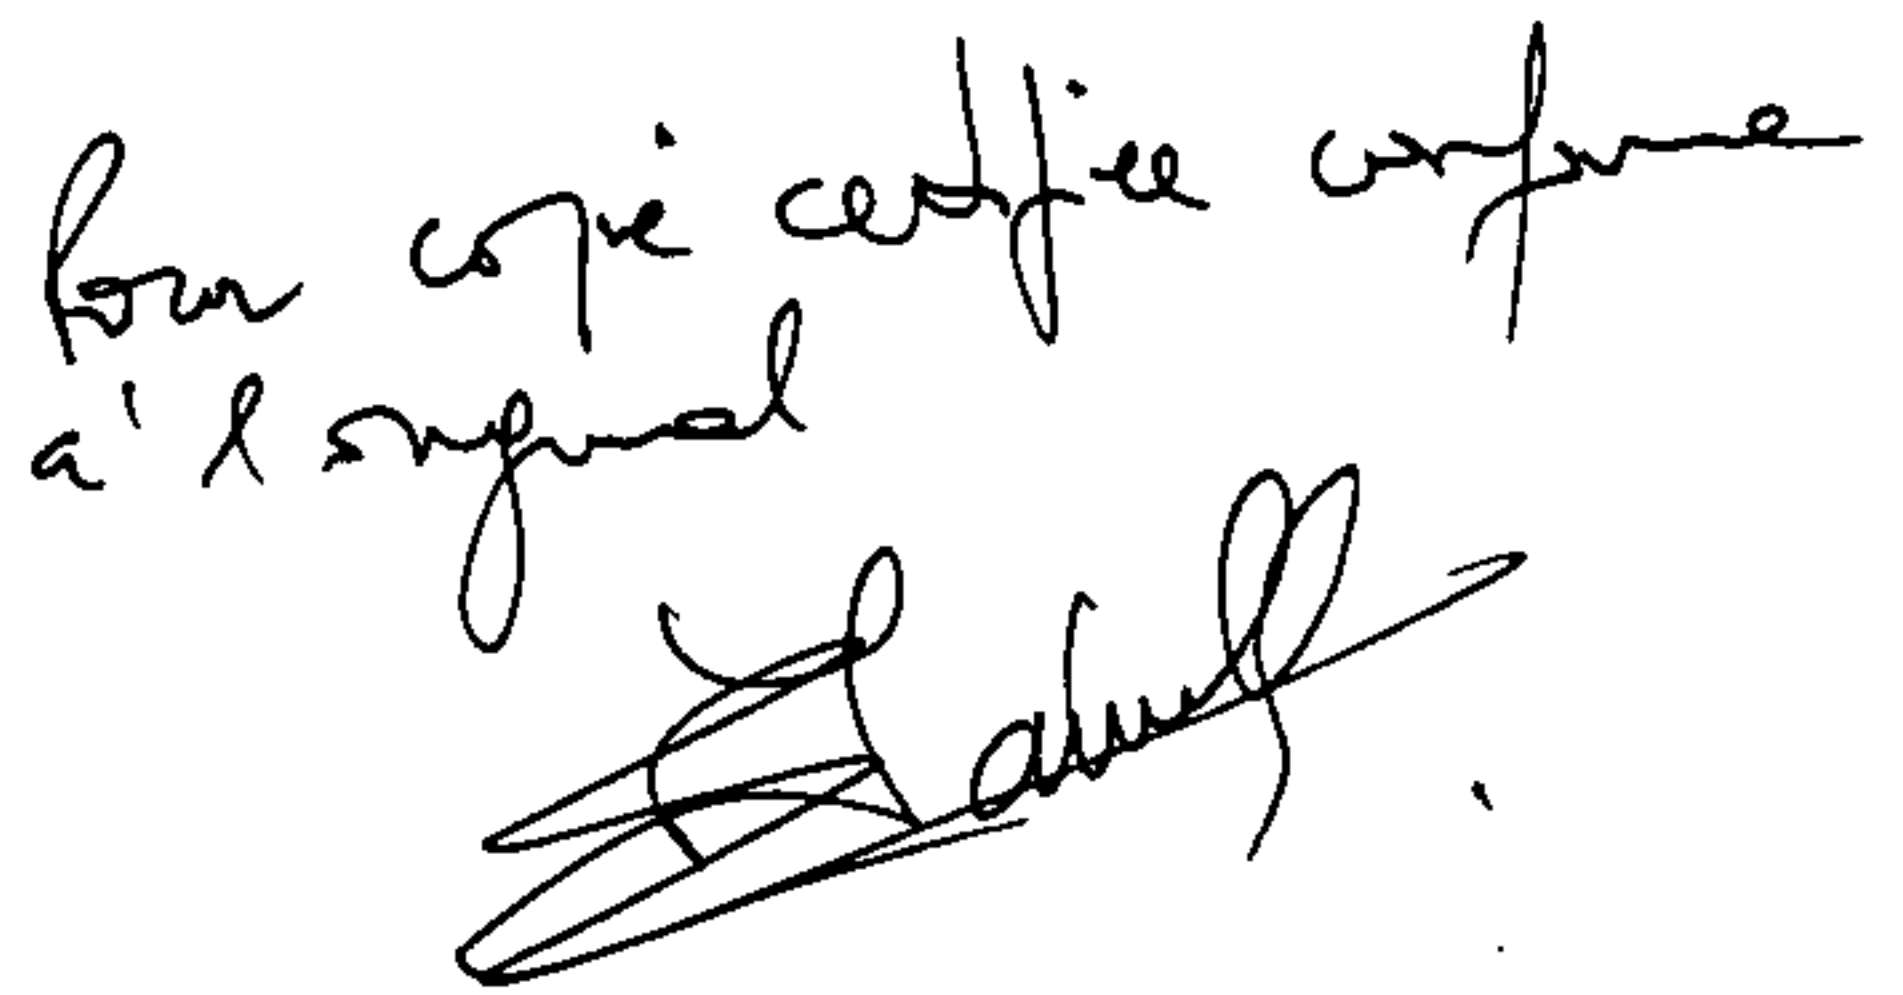 Pour copie certifiée conforme
à l'original